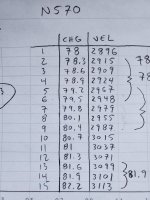 N570
CHG VEL
1 78 2896
2 78.3 2915 78
3 78.6 2909 78
4 78.9 2924
5 79.2 2967
6 79.5 2948
7 79.8 2979
8 80.1 2955
9 80.4 2987
10 80.7 3015
11 81 3037
12 81.3 3071
13 81.6 3099
14 81.9 3101 81.9
15 82.2 3113